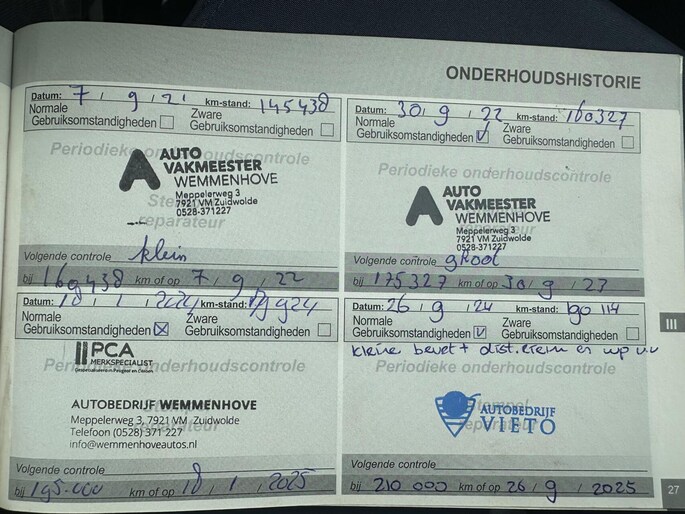 ONDERHOUDSHISTORIE
Datum: 7 / 9 / 21 km-stand: 145438
Normale Gebruiksomstandigheden
Zware Gebruiksomstandigheden
Periodieke onderhoudscontrole
AUTO
VAKMEESTER
WEMMENHOVE
Meppelerweg 3
7921 VM Zuidwolde
0528-371227
Stempel
reparateur
Volgende controle klein
bij 160438 km of op 7 / 9 / 22
Datum: 30 / 9 / 22 km-stand: 160327
Normale Gebruiksomstandigheden V
Zware Gebruiksomstandigheden
Periodieke onderhoudscontrole
AUTO
VAKMEESTER
WEMMENHOVE
Meppelerweg 3
7921 VM Zuidwolde
0528-371227
Volgende controle groot
bij 175327 km of op 30 / 9 / 23
Datum: 18 / 1 / 2024 km-stand:
Normale Gebruiksomstandigheden X
Zware Gebruiksomstandigheden
PCA
MERKSPECIALIST
Periodieke onderhoudscontrole
AUTOBEDRIJF WEMMENHOVE
Meppelerweg 3, 7921 VM Zuidwolde
Telefoon (0528) 371 227
info@wemmenhoveautos.nl
Volgende controle
bij 195.000 km of op 18 / 1 / 2025
Datum: 26 / 9 / 24 km-stand: 190 114
Normale Gebruiksomstandigheden V
Zware Gebruiksomstandigheden
kleine beurt + dist.riem
Periodieke onderhoudscontrole
Stempel
reparateur
AUTOBEDRIJF
VIETO
Volgende controle
bij 210 000 km of op 26 / 9 / 2025
III
27